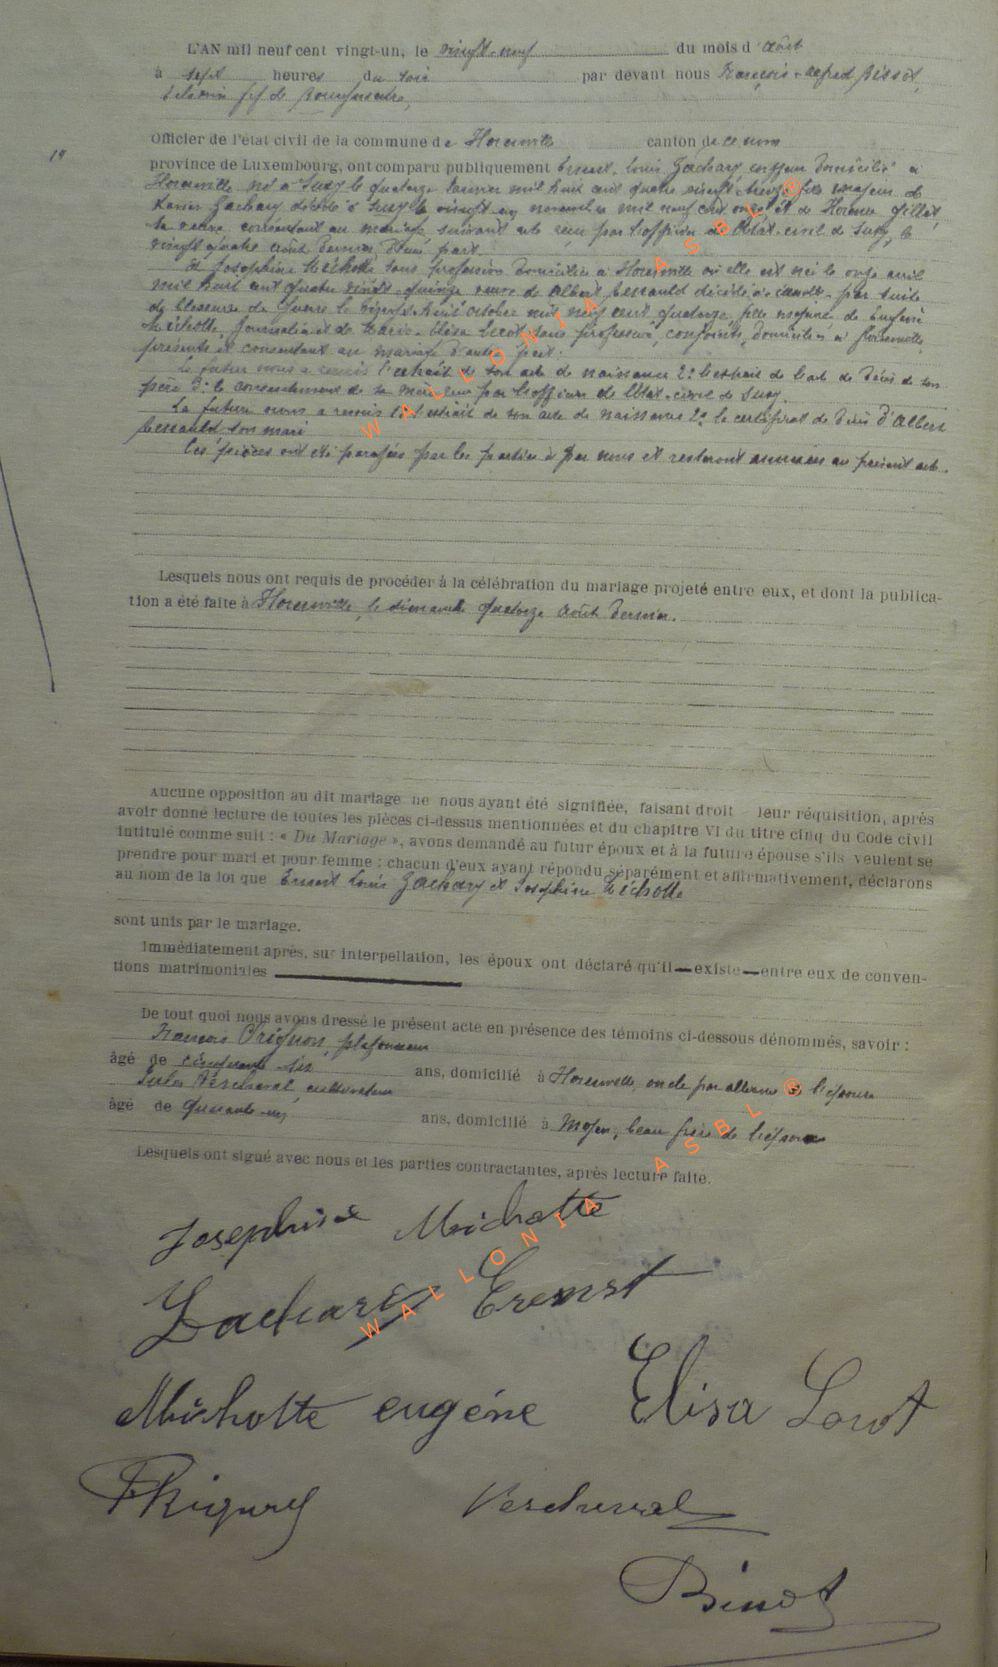 L'AN mil neuf cent vingt-un, le vingt-neuf du mois d'août
à sept heures du soir par devant nous François-Alfred Binot,
échevin ff de Bourgmestre,
Officier de l'état civil de la commune de Florenville canton de ce nom
19
province de Luxembourg, ont comparu publiquement Ernest Louis Zachary domicilié à
Florenville né à Suxy le quatorze janvier mil huit cent quatre vingt fils majeur de
Zachary décédé à Suxy le vingt cinq novembre mil neuf cent onze et de Florence Gillet,
sa veuve, consentant au mariage suivant acte reçu par l'officier de l'état-civil de Suxy, le
vingt quatre août dernier d'une part.
Et Joséphine Michotte sans profession domiciliée à Florenville où elle est née le onze avril
mil huit cent quatre vingt-quinze veuve de Albert Penauld décédé à par suite
de blessures de guerre le vingt-huit octobre mil neuf cent quatorze, fille majeure de Eugène
Michotte, journalier et de Marie-Elisa Lorot sans profession, conjoints, domiciliés à Florenville,
présents et consentant au mariage d'autre part.
Le futur nous a remis l'extrait de son acte de naissance 2° l'extrait de l'acte de décès de son
père 3° le consentement de sa mère reçu par l'officier de l'état-civil de Suxy.
La future nous a remis l'extrait de son acte de naissance 2° le certificat de décès d'Albert
Penauld son mari
Ces pièces ont été parafées par les parties & par nous et resteront annexées au présent acte.
Lesquels nous ont requis de procéder à la célébration du mariage projeté entre eux, et dont la publica-
tion a été faite à Florenville, le dimanche quatorze août dernier.
Aucune opposition au dit mariage ne nous ayant été signifiée, faisant droit leur réquisition, après
avoir donné lecture de toutes les pièces ci-dessus mentionnées et du chapitre VI du titre cinq du Code civil
intitulé comme suit : « Du Mariage », avons demandé au futur époux et à la future épouse s'ils veulent se
prendre pour mari et pour femme ; chacun d'eux ayant répondu séparément et affirmativement, déclarons
au nom de la loi que Ernest Louis Zachary et Joséphine Michotte
sont unis par le mariage.
Immédiatement après, sur interpellation, les époux ont déclaré qu'il — existe — entre eux de conven-
tions matrimoniales
De tout quoi nous avons dressé le présent acte en présence des témoins ci-dessous dénommés, savoir :
François plafonneur
âgé de cinquante six ans, domicilié à Florenville, oncle par alliance de l'épouse
Jules Vescheval, cultivateur
âgé de quarante-un ans, domicilié à Moyen, beau frère de l'épouse
Lesquels ont signé avec nous et les parties contractantes, après lecture faite.
Joséphine Michotte
Zachary Ernest
Michotte eugéne Elisa Lorot
Vescheval
Binot
WALLONIA ASBL ®
WALLONIA ASBL ®